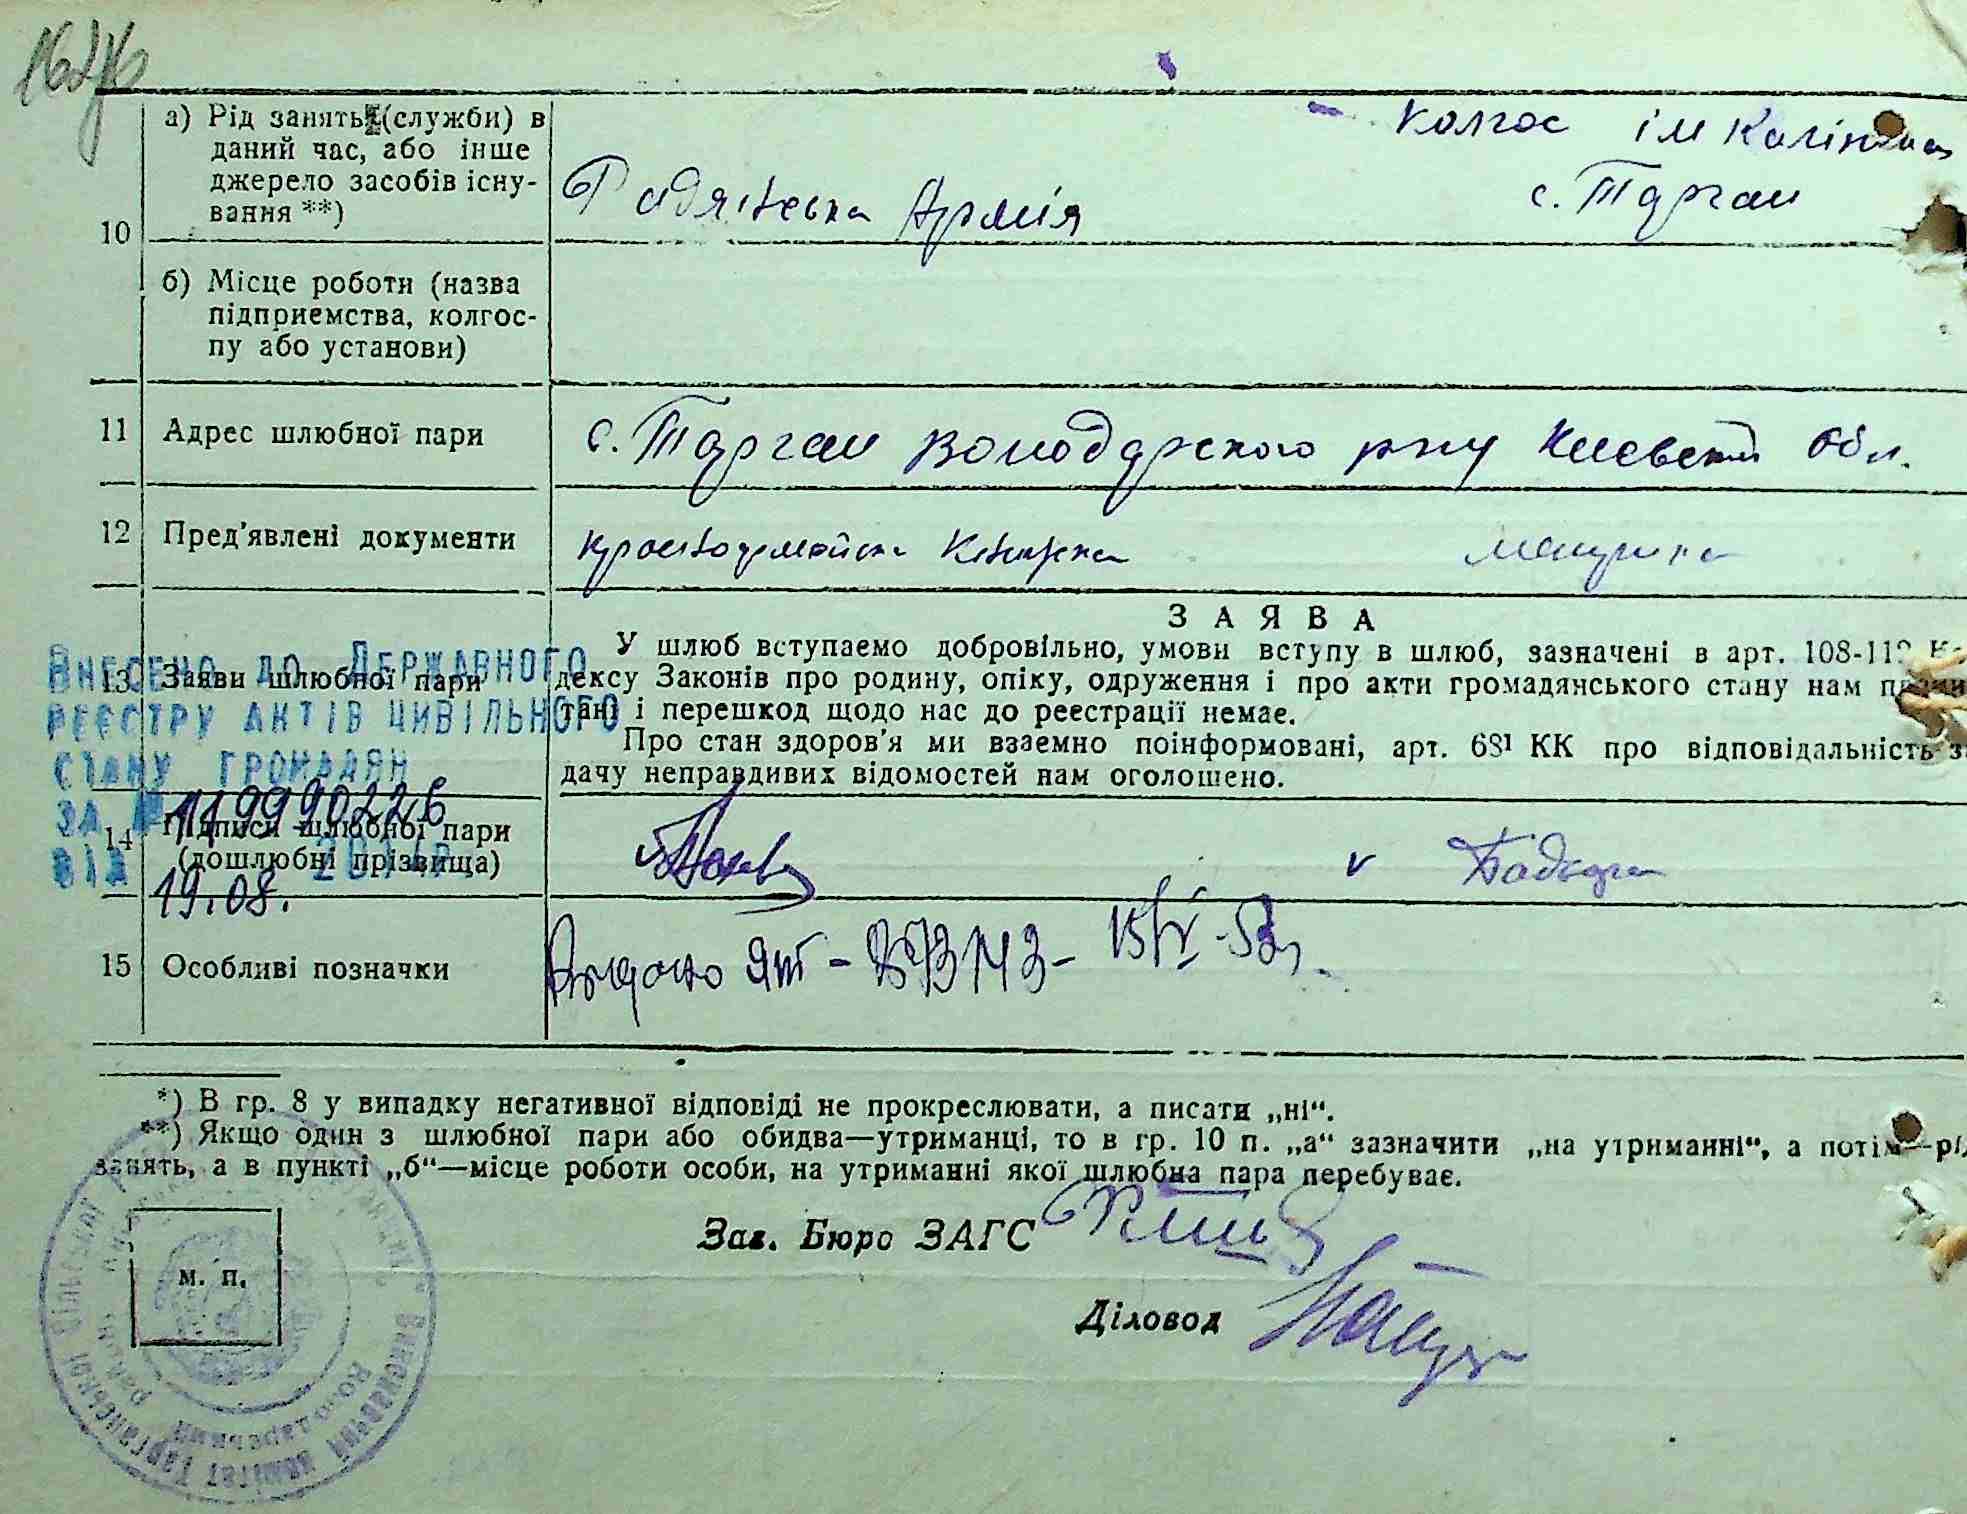 10
а) Рід занять (служби) в
даний час, або інше
джерело засобів існу-
вання **)
Радянська Армія
Колгос ім Калініна
с. Тарган
б) Місце роботи (назва
підприємства, колгос-
пу або установи)
11 Адрес шлюбної пари
с. Тарган Володарского р-ну Киевской обл.
12 Пред'явлені документи
красноармейска Книжка
ЗАЯВА
13 Заяви шлюбної пари
У шлюб вступаємо добровільно, умови вступу в шлюб, зазначені в арт. 108-112
дексу Законів про родину, опіку, одруження і про акти громадянського стану нам
тані і перешкод щодо нас до реєстрації немає.
Про стан здоров'я ми взаємно поінформовані, арт. 68¹ КК про відповідальність з
дачу неправдивих відомостей нам оголошено.
Внесено до Державного
реєстру актів цивільного
стану громадян
за № 119990226
від 19.08.
14 Підписи шлюбної пари
(дошлюбні прізвища)
v
15 Особливі позначки
15/IV-53
*) В гр. 8 у випадку негативної відповіді не прокреслювати, а писати „ні“.
**) Якщо один з шлюбної пари або обидва—утриманці, то в гр. 10 п. „а“ зазначити „на утриманні“, а потім—рі
занять, а в пункті „б“—місце роботи особи, на утриманні якої шлюбна пара перебуває.
Зав. Бюро ЗАГС
Діловод
м. п.
Виконавчий комітет Тарганської сільської
Володарський